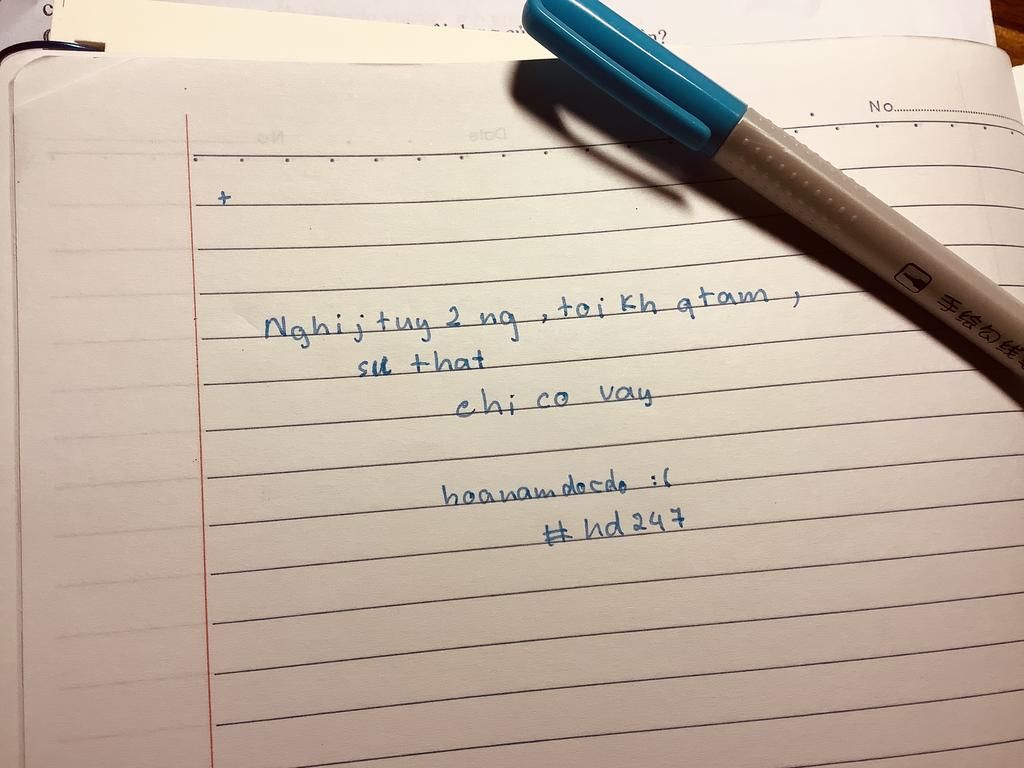 No
+
Nghij tuy 2 ng , toi kh qtam ,
su that
chi co vay
hoanamdocdo :(
# hd 247
手绘勾线